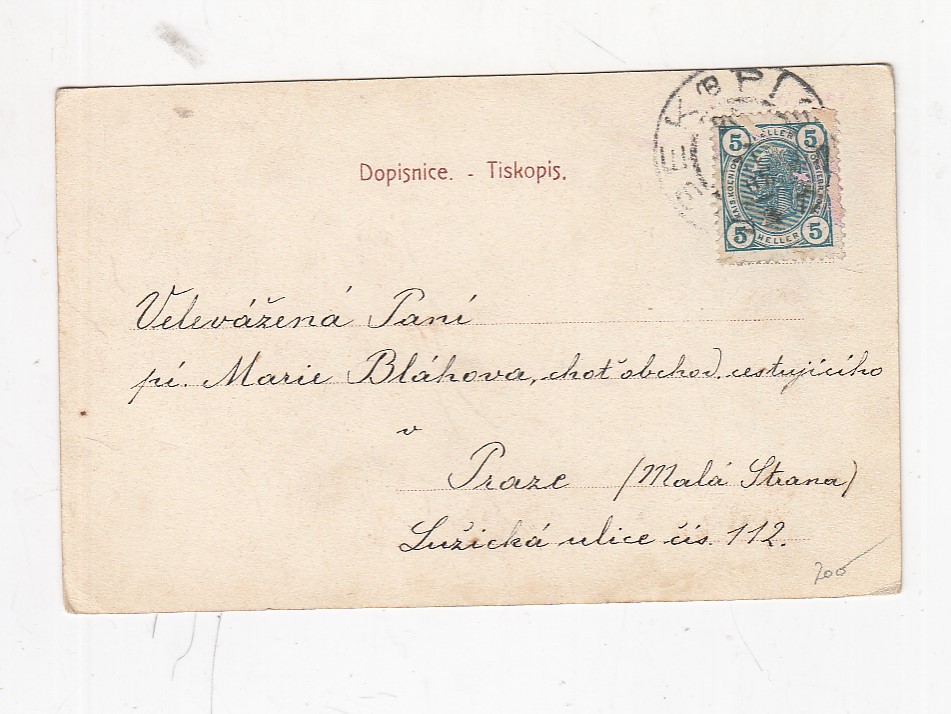 Dopisnice. - Tiskopis.
5 HELLER 5
5 HELLER 5
Velevážená Paní
pí. Marie Bláhova, choť obchod. cestujícího
v
Praze (Malá Strana)
Lužická ulice čís. 112.
200